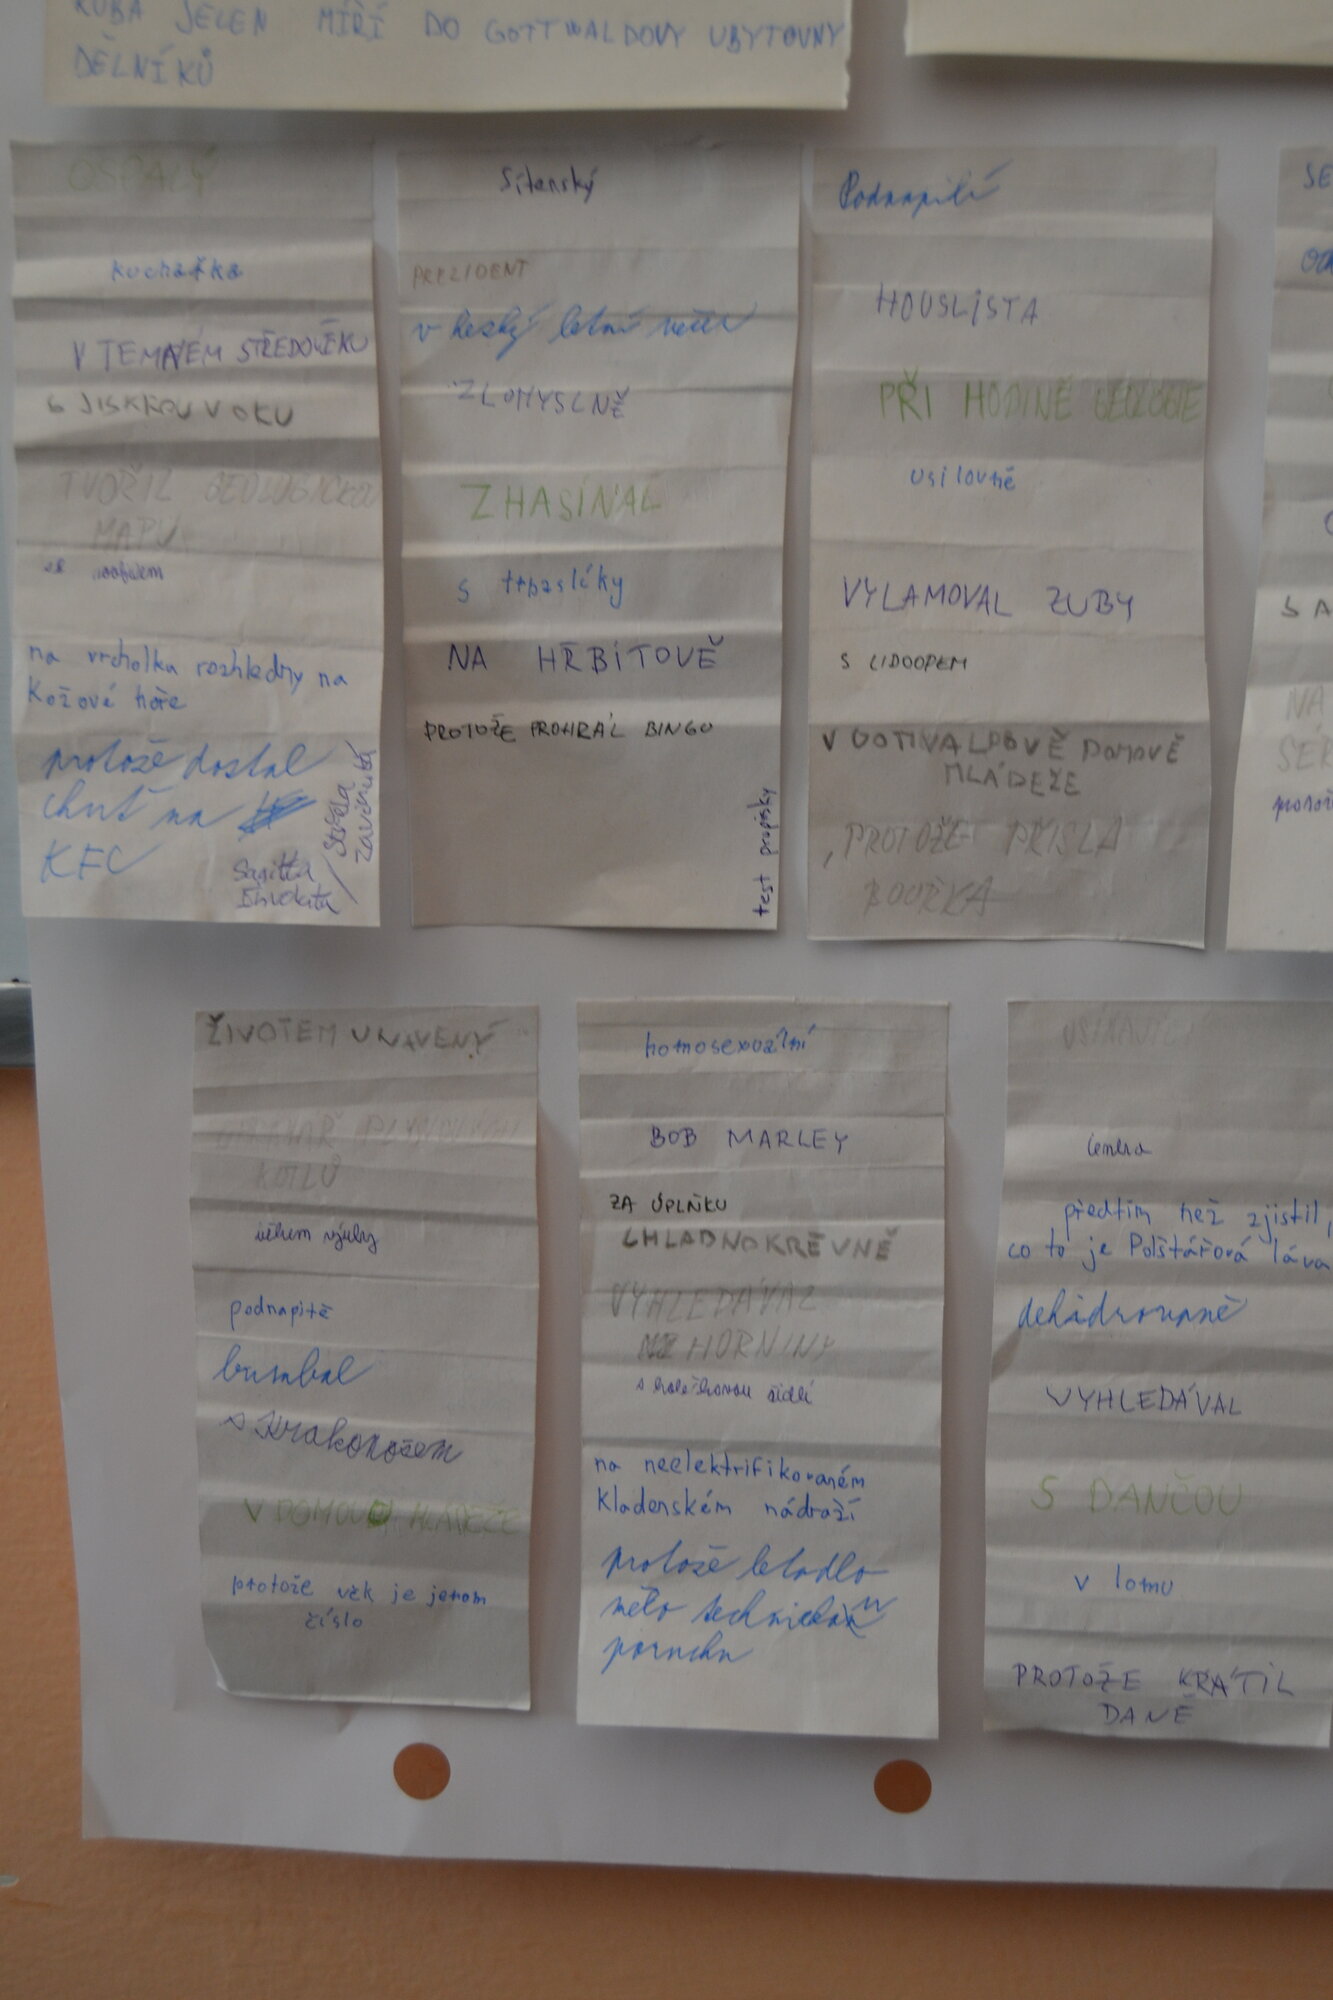 KUBA JELEN MÍŘÍ DO GOTTWALDOVY UBYTOVNY
DĚLNÍKŮ
OSPALÝ
kuchařka
V TEMNÉM STŘEDOVĚKU
S JISKROU V OKU
TVOŘIL GEOLOGICKOU
MAPU
na vrcholka rozhledny na
Kožové hoře
protože dostal
chuť na
KFC
Sagitta
Střela
zavinutá
Šílenský
PREZIDENT
v hezký letní večer
ZLOMYSLNĚ
ZHASÍNAL
s trpaslíky
NA HŘBITOVĚ
PROTOŽE PROHRÁL BINGO
test propisky
Podnapilí
HOUSLISTA
PŘI HODINĚ GEOLOGIE
usilovně
VYLAMOVAL ZUBY
S LIDOOPEM
V GOTTWALDOVĚ DOMOVĚ
MLÁDEŽE
PROTOŽE PŘIŠLA
BOUŘKA
SE
S A
NA
ŽIVOTEM UNAVENÝ
PLYNOVÝCH
KOTLŮ
během výuky
podnapitě
bumbal
s Krakonošem
V DOMOVĚ MLÁDEŽE
protože věk je jenom
číslo
homosexuální
BOB MARLEY
ZA ÚPLŇKU
CHLADNOKREVNĚ
VYHLEDÁVAL
HORNINY
na neelektrifikovaném
Kladenském nádraží
protože letadlo
mělo technickou
poruchu
USÍNAJÍCÍ
předtím než zjistil,
co to je Polštářová láva
dehidrovaně
VYHLEDÁVAL
S DANČOU
v lomu
PROTOŽE KRÁTIL
DANĚ